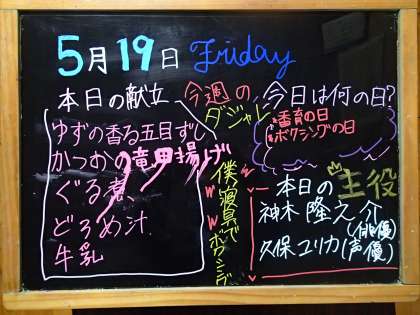 5月19日 Friday
本日の献立
ゆずの香る五目ずし
かつおの竜田揚げ
ぐる煮
どろめ汁
牛乳
今週の
ダジャレ
僕、演景でボクシング
今日は何の日?
香育の日
ボクシングの日
本日の主役
神木隆之介
(俳優)
久保ユリカ(声優)